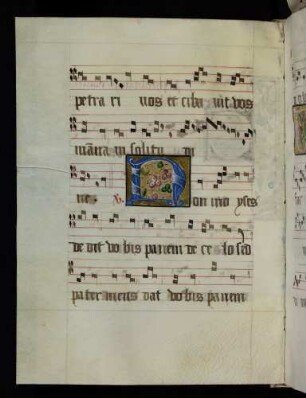 petra ri vos et ciba vit vos
māna in solitu di
ne. V. Non moyses
de dit vo bis panem de ce lo sed
pater meus dat vobis panem